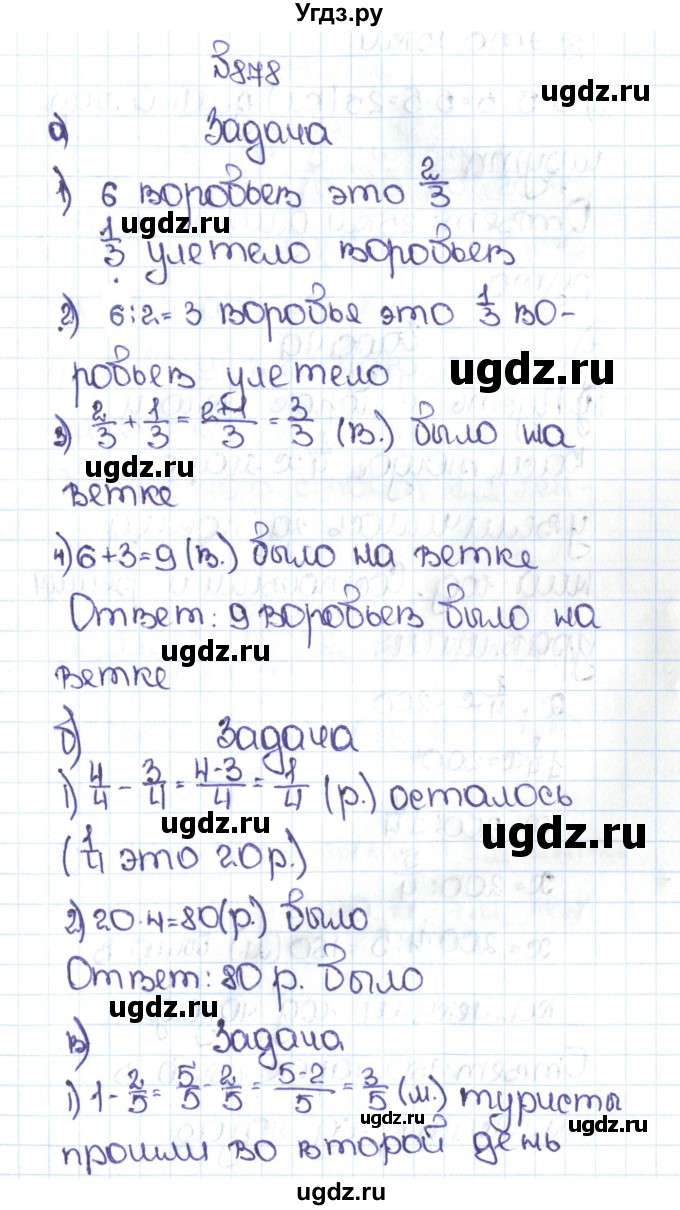 Угдз.ру
№878
ugdz.ru
а) Задача
1) 6 воробьев это 2/3
ugdz.ru
1/3 улетело воробьев
2) 6:2=3 воробья это 1/3 во-
робьев улетело
ugdz.ru
3) 2/3 + 1/3 = 2+1/3 = 3/3 (в.) было на
ugdz.ru
ветке
4) 6+3=9 (в.) было на ветке
Ответ: 9 воробьев было на
ugdz.ru
ветке
б) Задача
1) 4/4 - 3/4 = 4-3/4 = 1/4 (р.) осталось
ugdz.ru
ugdz.ru
(1/4 это 20р.)
2) 20·4=80(р.) было
Ответ: 80 р. было
ugdz.ru
в) Задача
1) 1-2/5 = 5/5 - 2/5 = 5-2/5 = 3/5 (м.) туристы
ugdz.ru
прошли во второй день
ugdz.ru